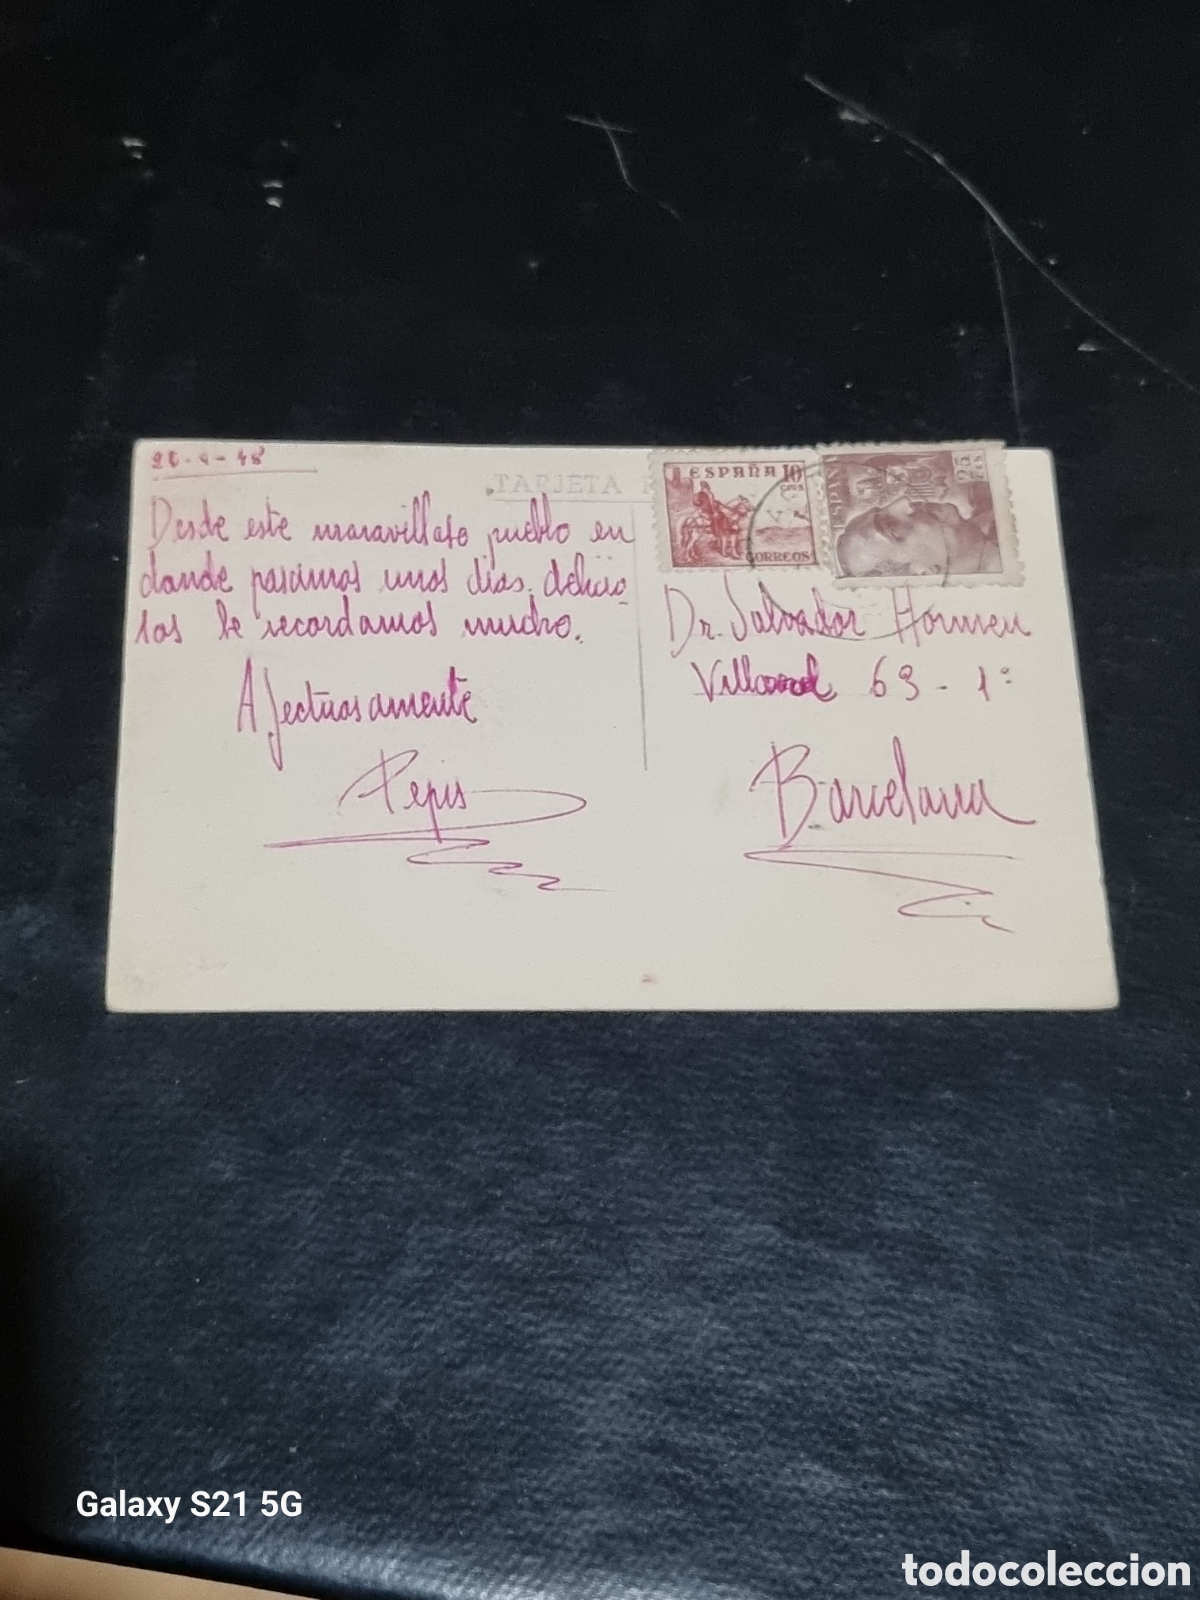 26-4-48
TARJETA
ESPAÑA 10
cms
CORREOS
ESPAÑA
25
cts
Desde este maravilloso pueblo en
donde pasamos unos dias delicio-
sos le recordamos mucho.
Afectuosamente
Pepis
Dr. Salvador
Villarroel 63 - 1º
Barcelona
Galaxy S21 5G
todocoleccion